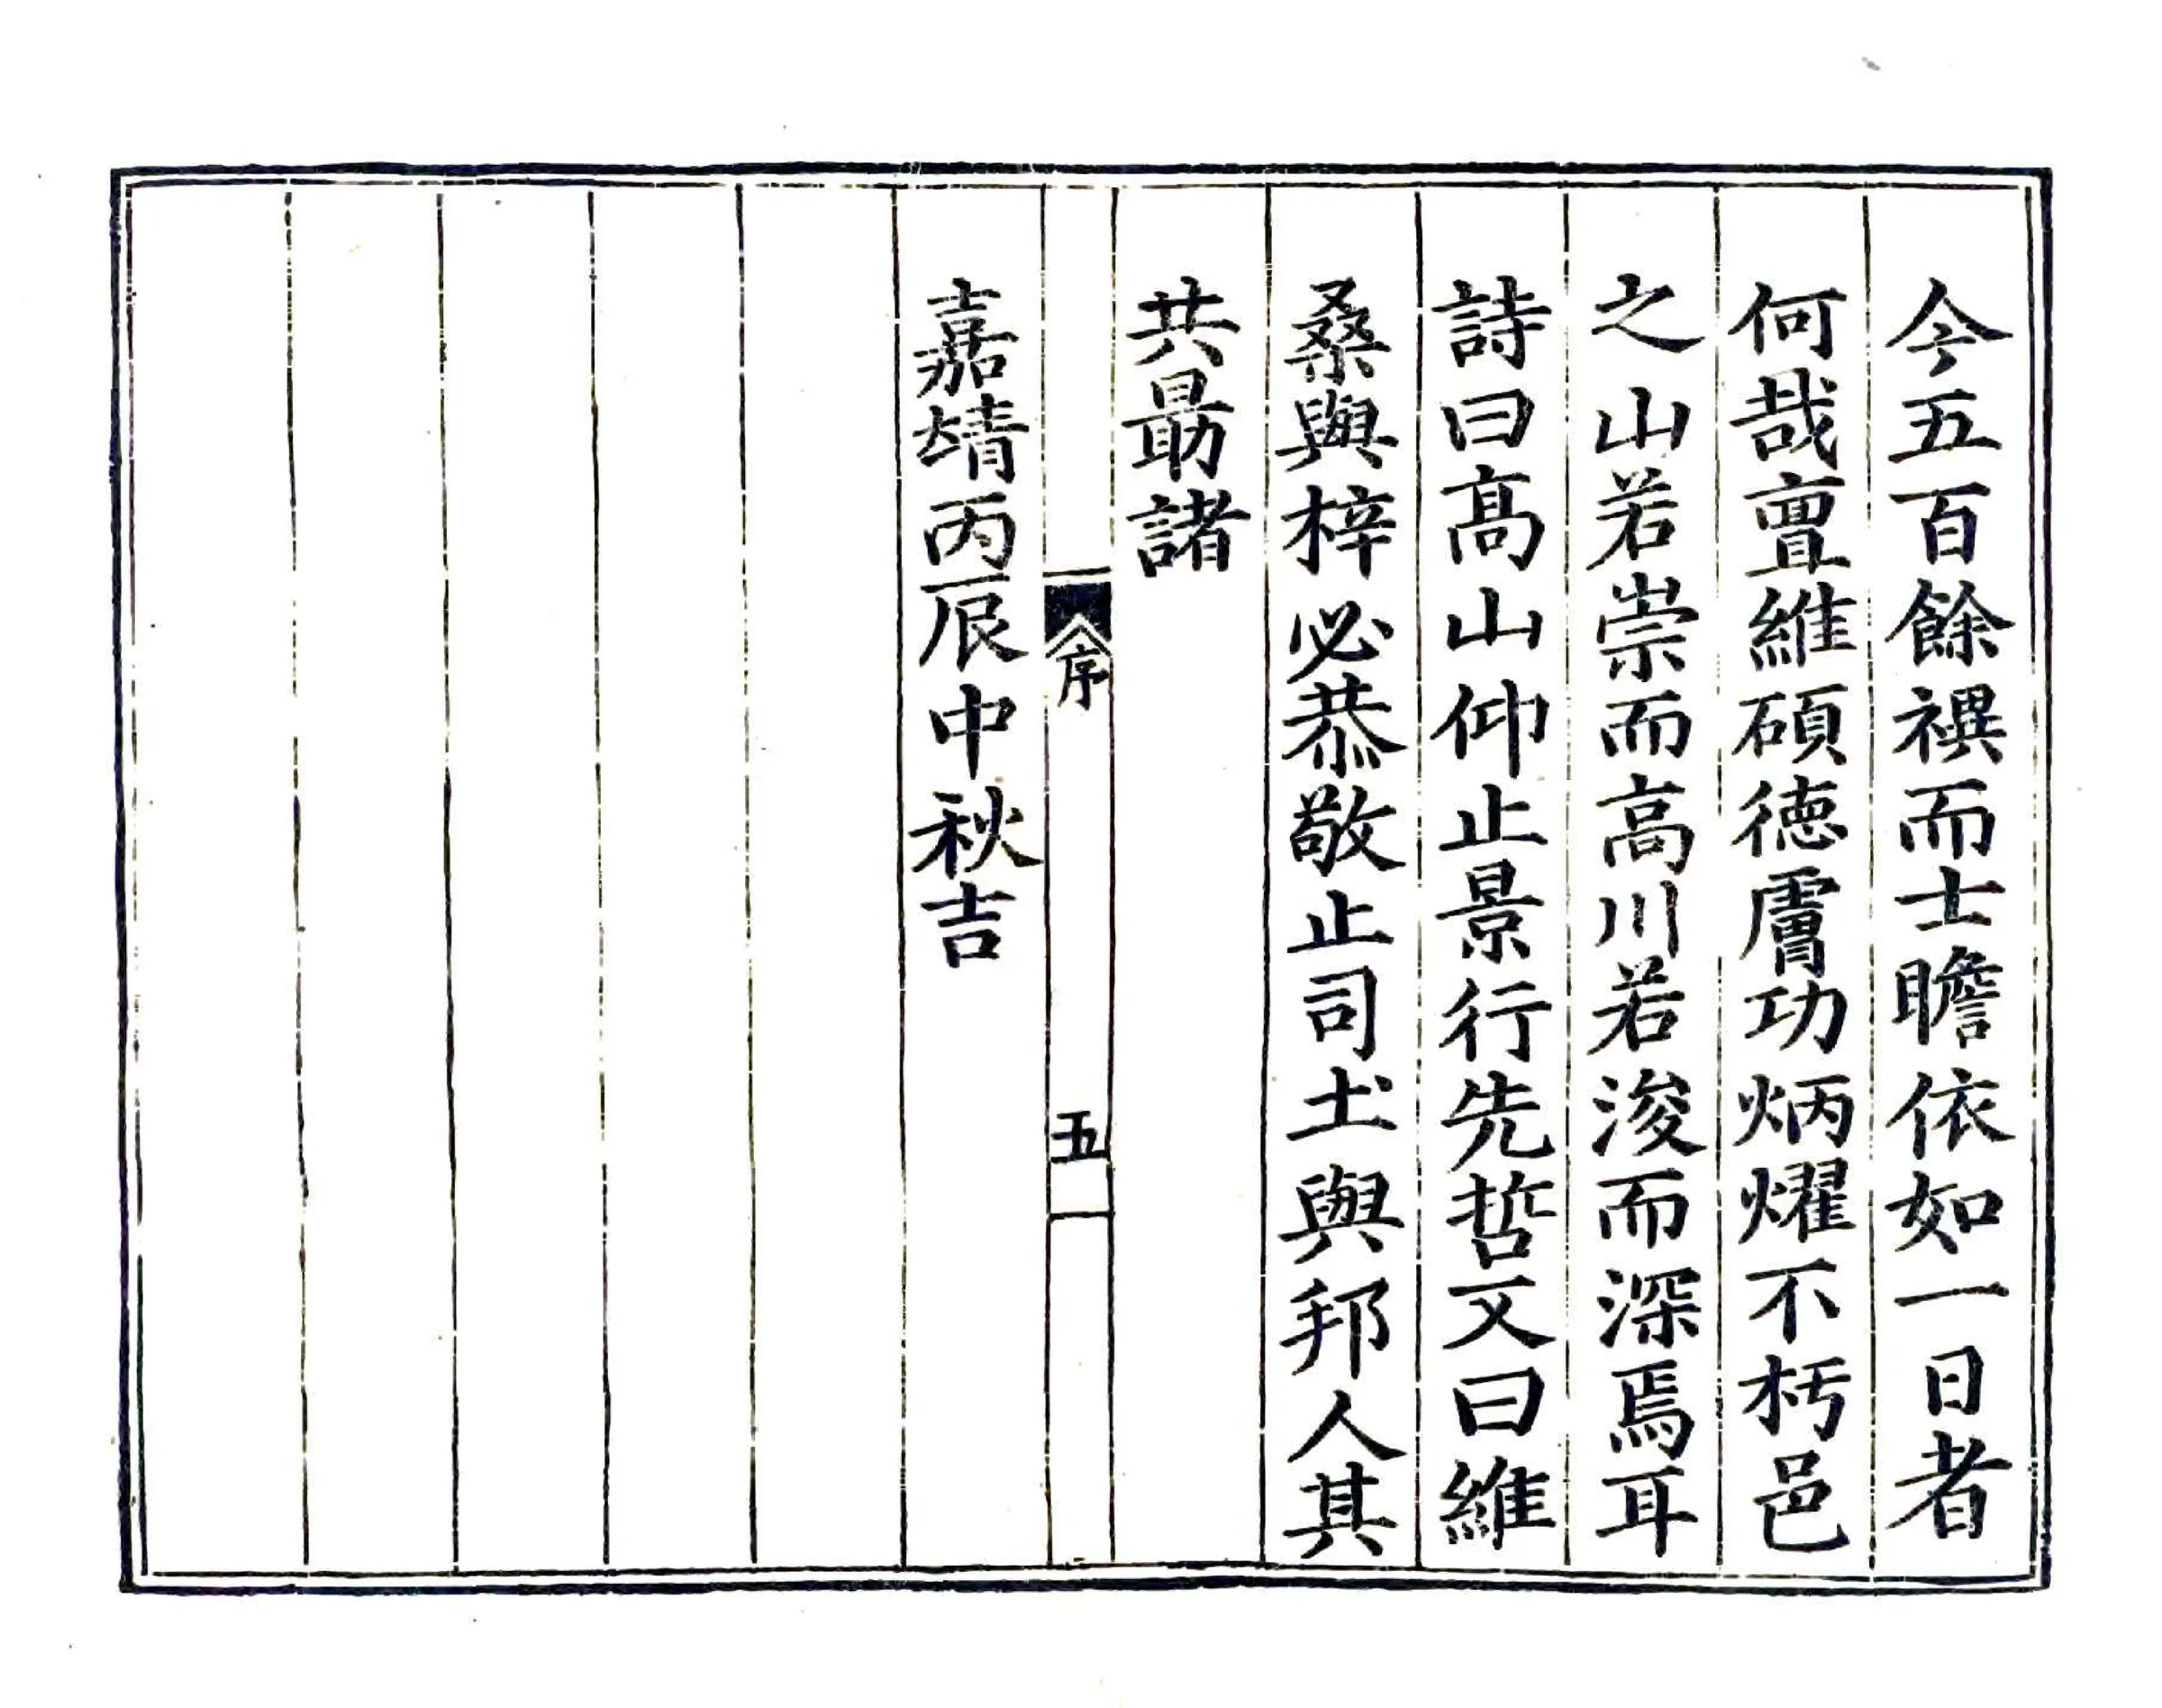 今五百餘禩而士瞻依如一日者
何哉亶維碩德膚功炳燿不朽邑
之山若崇而高川若浚而深焉耳
詩曰髙山仰止景行先哲又曰維
桑與梓必恭敬止司土與邦人其
共勗諸
序
五
嘉靖丙辰中秋吉